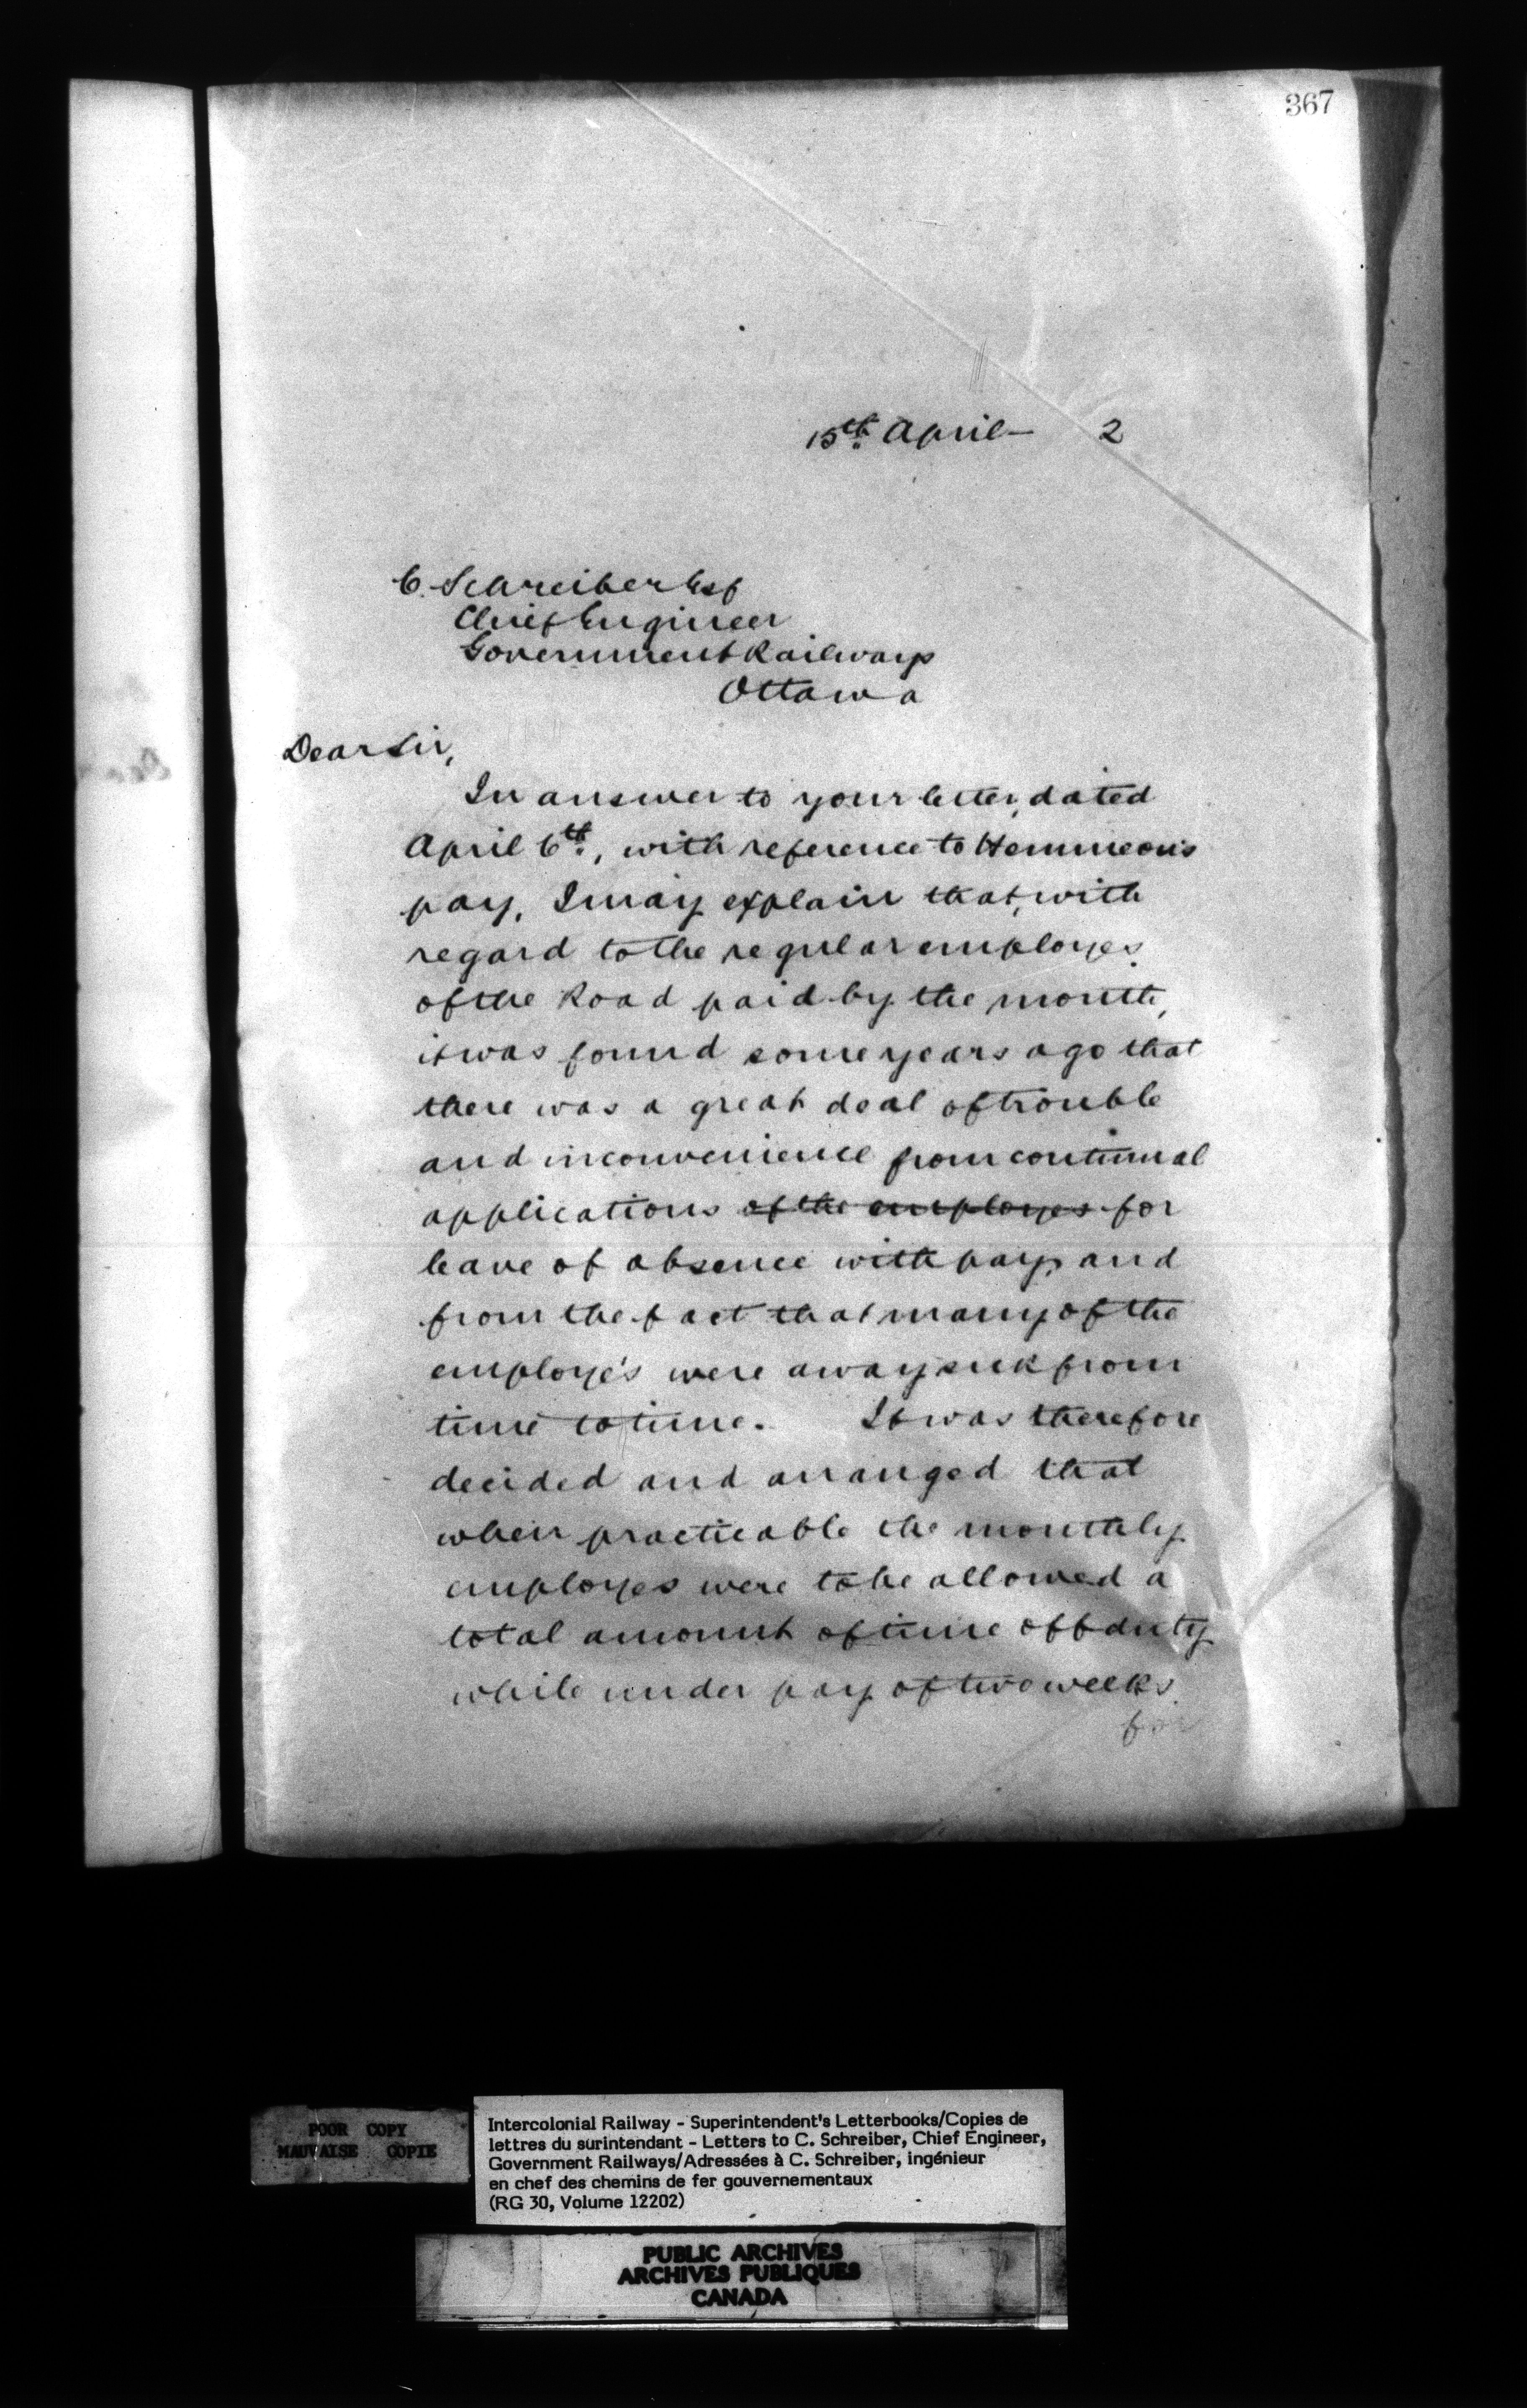 367
15th. April— 2
C. Schreiber Esq
Chief Engineer
Government Railways
Ottawa
Dear Sir,
In answer to your letter, dated
April 6th., with reference to Hemmeon's
pay, I may explain that, with
regard to the regular employes
of the Road paid by the month,
it was found some years ago that
there was a great deal of trouble
and inconvenience from continual
applications of the employes for
leave of absence with pay, and
from the fact that many of the
employe's were away sick from
time to time. It was therefore
decided and arranged that
when practicable the monthly
employes were to be allowed a
total amount of time off duty
while under pay of two weeks
for
POOR COPY
MAUVAISE COPIE
Intercolonial Railway - Superintendent's Letterbooks/Copies de
lettres du surintendant - Letters to C. Schreiber, Chief Engineer,
Government Railways/Adressées à C. Schreiber, ingénieur
en chef des chemins de fer gouvernementaux
(RG 30, Volume 12202)
PUBLIC ARCHIVES
ARCHIVES PUBLIQUES
CANADA